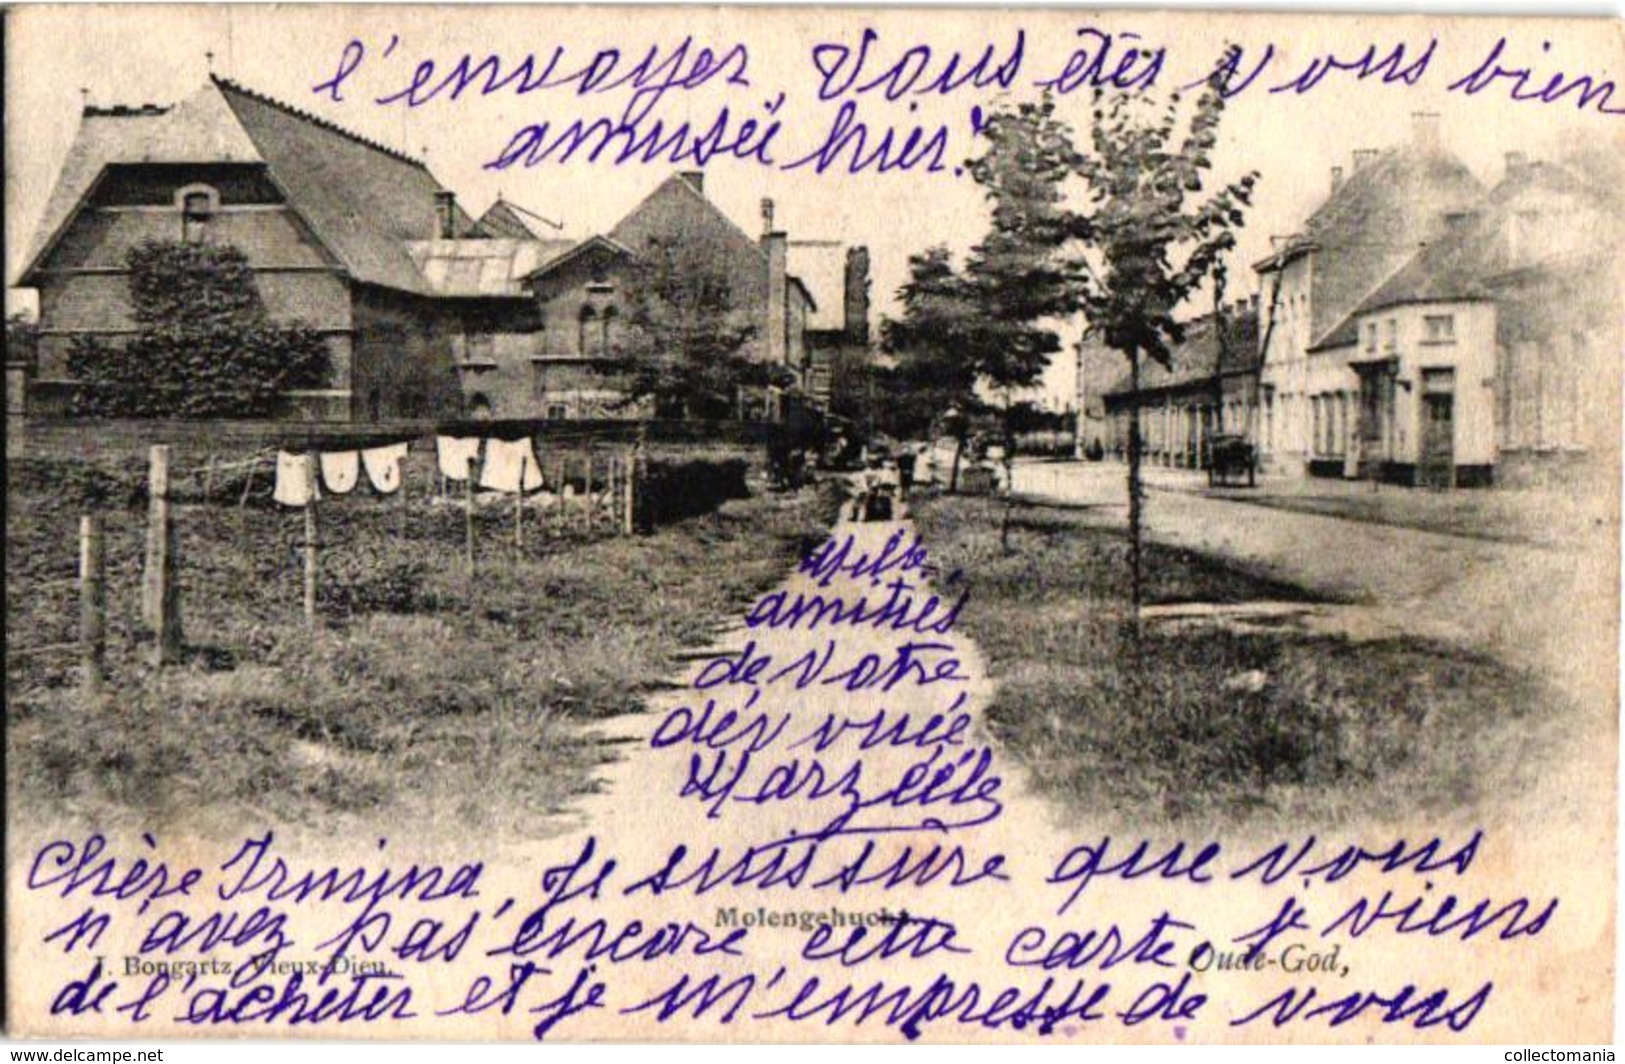 l'envoyer, Vous êtes vous bien
amusée hier?
Mille
amitiés
de votre
dévouée
Marzelle
Chère Irmina, Je suis sure que vous
n'avez pas encore cette carte, je viens
de l'acheter et je m'empresse de vous
Molengehucht.
J. Bongartz, Vieux-Dieu.
Oude-God,
collectomania